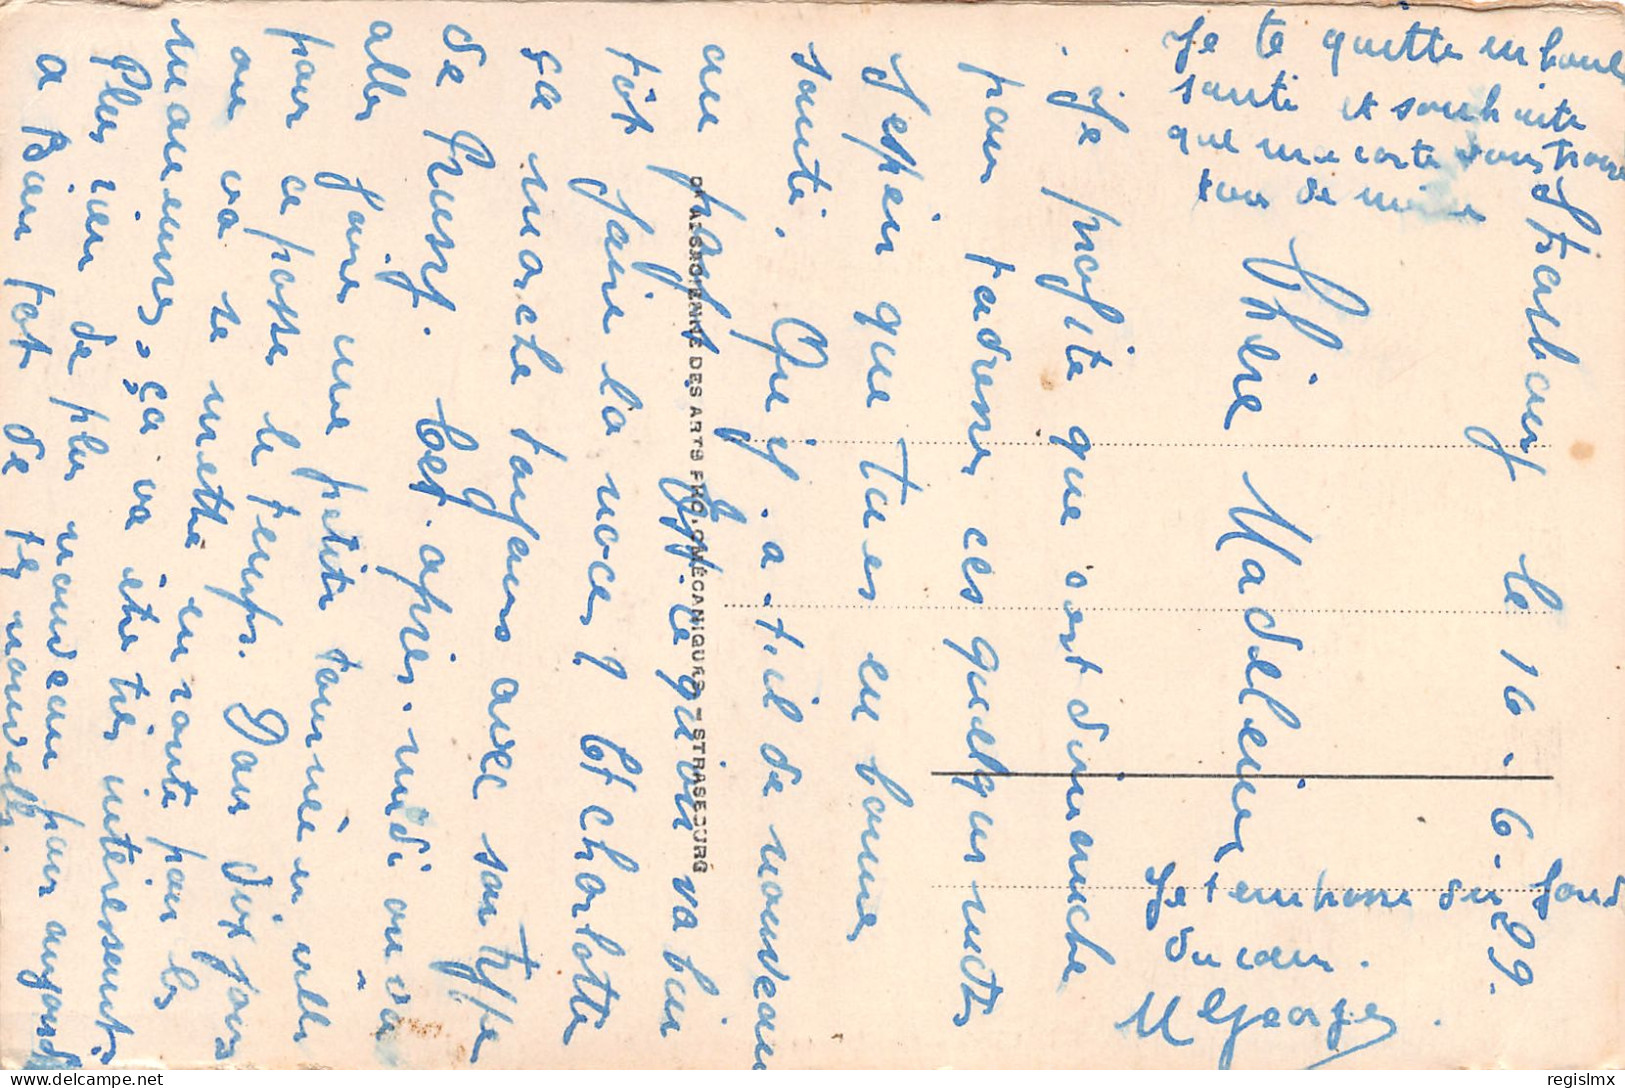 Strasbourg le 16-6-39.
Chère Madeleine
Je profite que c'est dimanche
pour t'adresser ces quelques mots
J'espère que tu es en bonne
santé. Qu'y. a-t-il de nouveau
au pays? Est-ce qu'on va bien
tôt faire la noce? Et Charlotte
ça marche toujours avec son type
de Prusy. Cet. après. midi on va
aller faire une petite tournée en ville
pour ça passe le temps. Dans dix jours
on va se mettre en route pour les
manœuvres, ça va être très intéressant
Plus rien de plus nouveau pour aujourd
a Bien tot de tes nouvelles.
Je te quitte en bonne
santé et souhaite
que ma carte vous trouve
tous de même
Je t'embrasse du fond
du cœur.
Georges
D'ALSACIENNE DES ARTS PHOTOMÉCANIQUES – STRASBOURG
regislmx